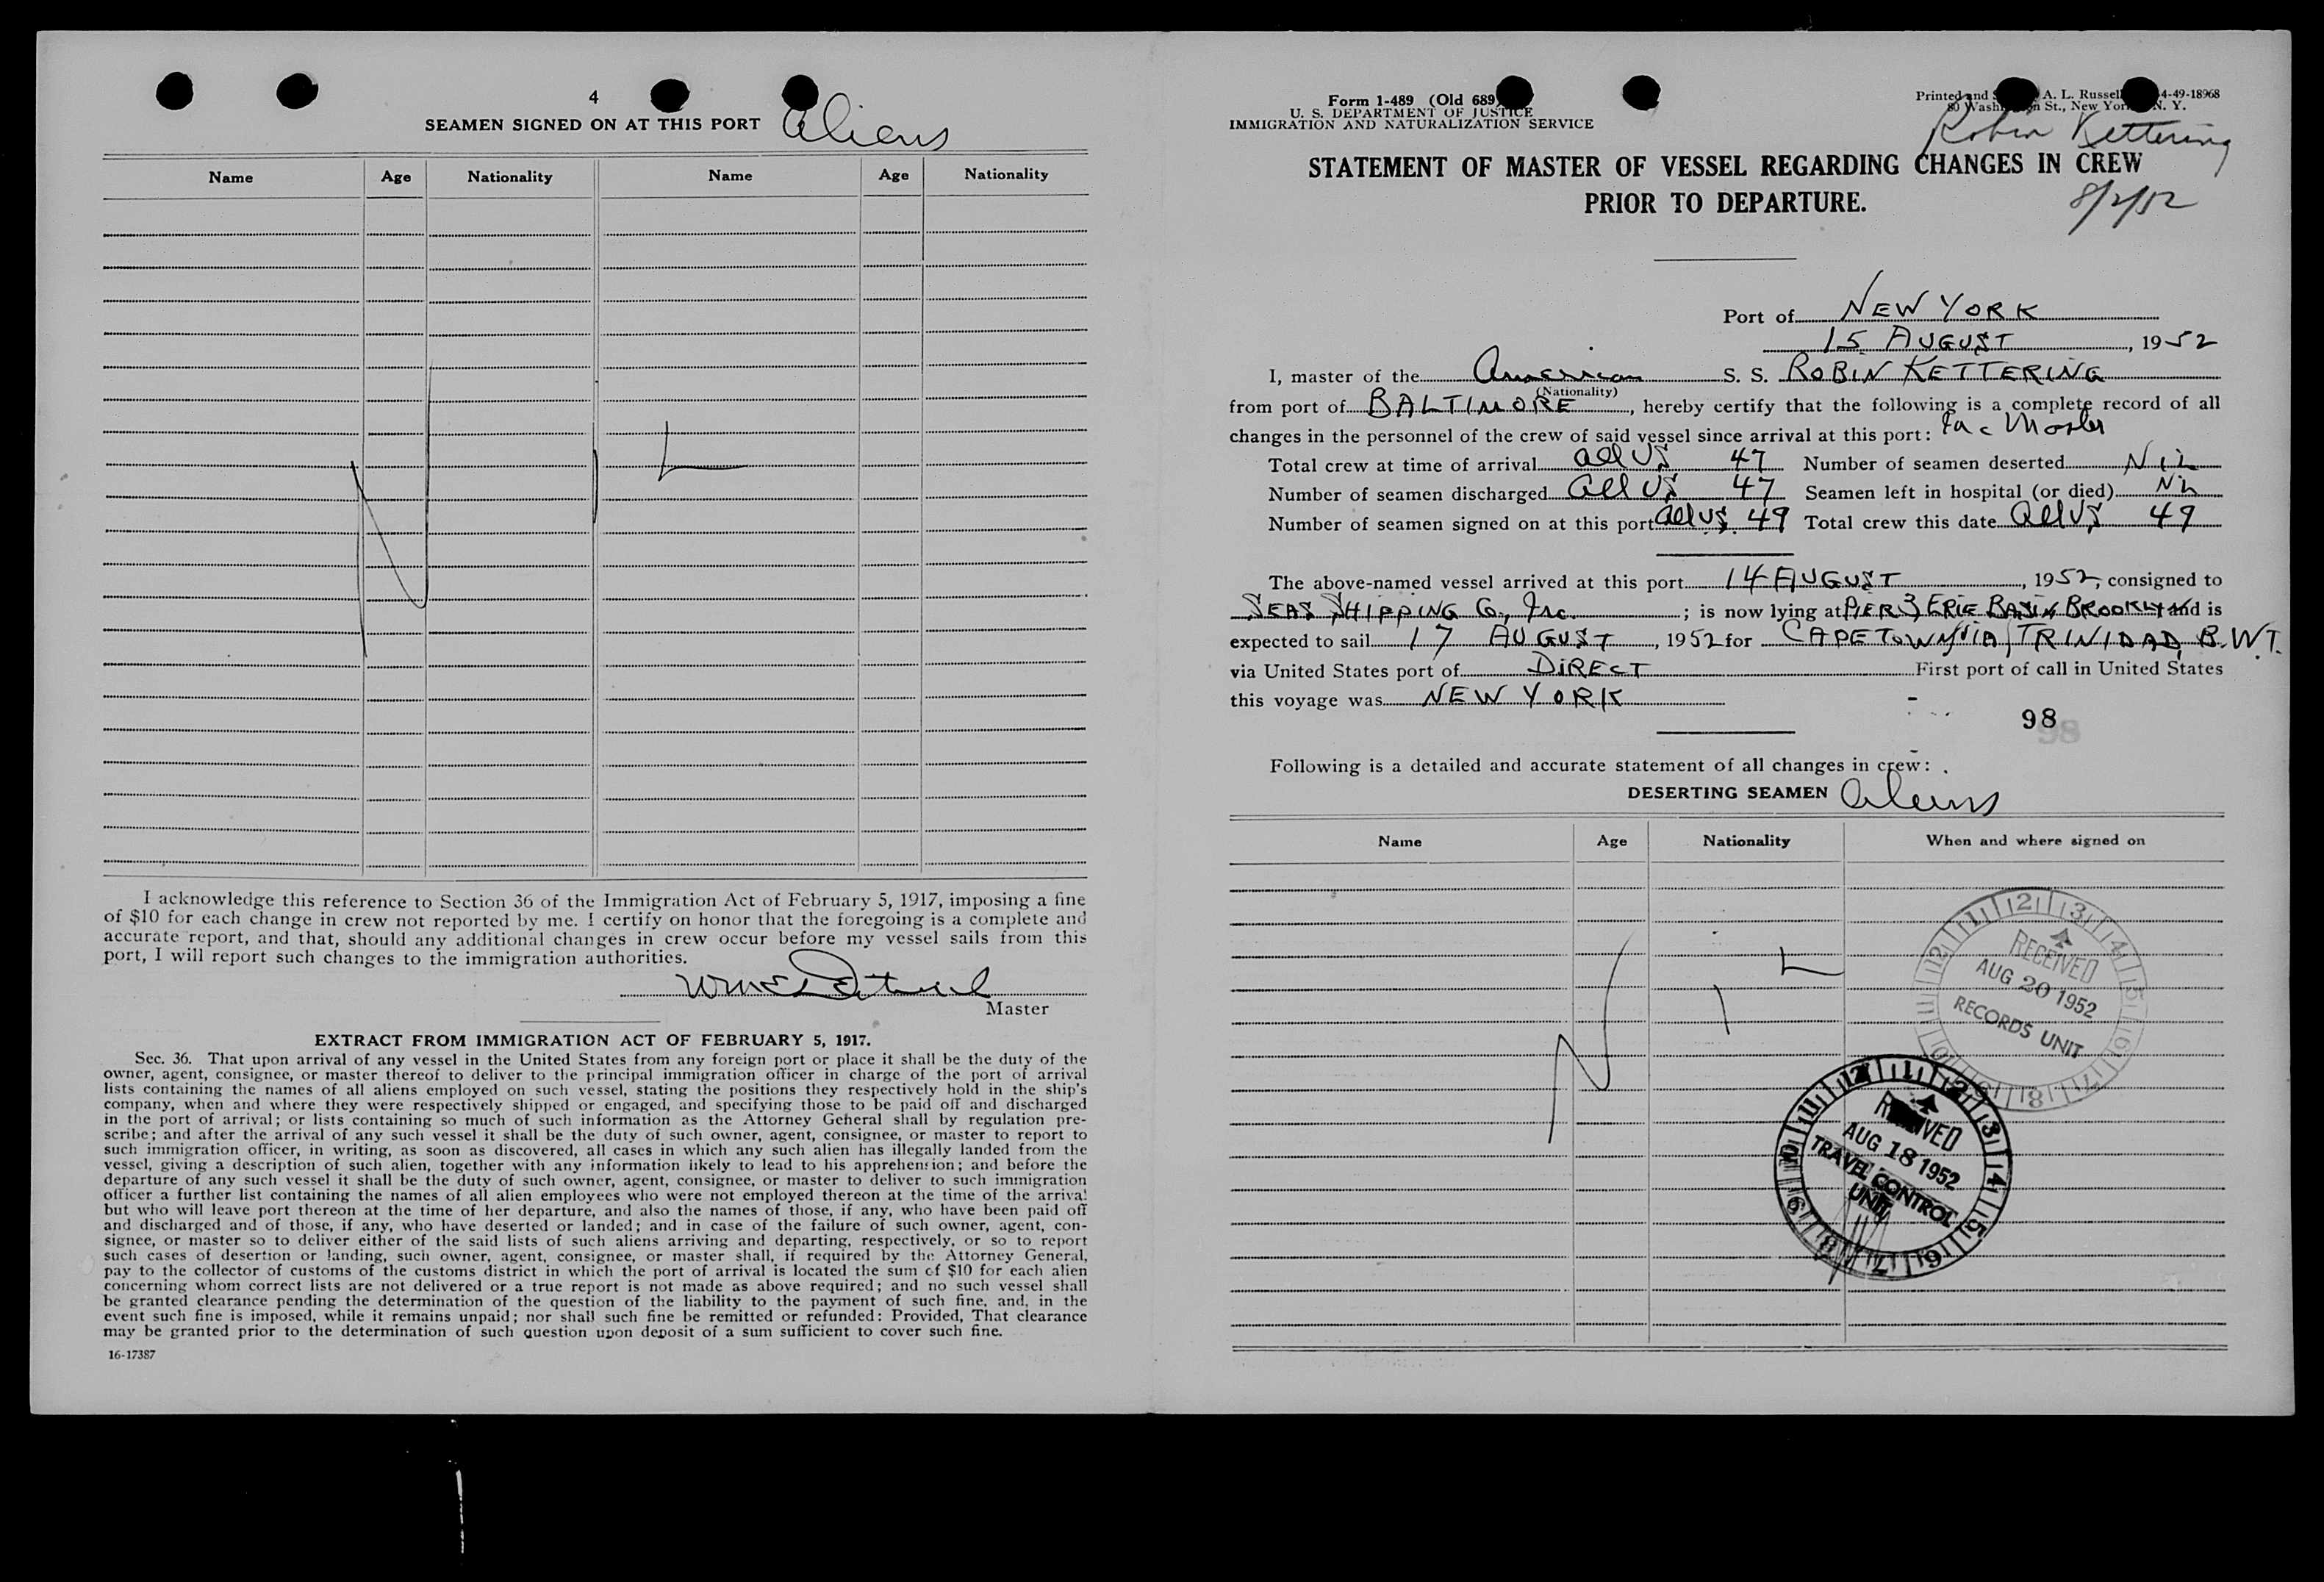 4
SEAMEN SIGNED ON AT THIS PORT Aliens
Name Age Nationality Name Age Nationality
N I L
I acknowledge this reference to Section 36 of the Immigration Act of February 5, 1917, imposing a fine
of $10 for each change in crew not reported by me. I certify on honor that the foregoing is a complete and
accurate report, and that, should any additional changes in crew occur before my vessel sails from this
port, I will report such changes to the immigration authorities.
Master
EXTRACT FROM IMMIGRATION ACT OF FEBRUARY 5, 1917.
Sec. 36. That upon arrival of any vessel in the United States from any foreign port or place it shall be the duty of the
owner, agent, consignee, or master thereof to deliver to the principal immigration officer in charge of the port of arrival
lists containing the names of all aliens employed on such vessel, stating the positions they respectively hold in the ship's
company, when and where they were respectively shipped or engaged, and specifying those to be paid off and discharged
in the port of arrival; or lists containing so much of such information as the Attorney General shall by regulation pre-
scribe; and after the arrival of any such vessel it shall be the duty of such owner, agent, consignee, or master to report to
such immigration officer, in writing, as soon as discovered, all cases in which any such alien has illegally landed from the
vessel, giving a description of such alien, together with any information likely to lead to his apprehension; and before the
departure of any such vessel it shall be the duty of such owner, agent, consignee, or master to deliver to such immigration
officer a further list containing the names of all alien employees who were not employed thereon at the time of the arrival
but who will leave port thereon at the time of her departure, and also the names of those, if any, who have been paid off
and discharged and of those, if any, who have deserted or landed; and in case of the failure of such owner, agent, con-
signee, or master so to deliver either of the said lists of such aliens arriving and departing, respectively, or so to report
such cases of desertion or landing, such owner, agent, consignee, or master shall, if required by the Attorney General,
pay to the collector of customs of the customs district in which the port of arrival is located the sum of $10 for each alien
concerning whom correct lists are not delivered or a true report is not made as above required; and no such vessel shall
be granted clearance pending the determination of the question of the liability to the payment of such fine, and, in the
event such fine is imposed, while it remains unpaid; nor shall such fine be remitted or refunded: Provided, That clearance
may be granted prior to the determination of such question upon deposit of a sum sufficient to cover such fine.
16-17387
Form 1-489 (Old 689)
U. S. DEPARTMENT OF JUSTICE
IMMIGRATION AND NATURALIZATION SERVICE
Printed and A. L. Russell 4-49-18968
80 Washington St., New York N. Y.
Robin Kettering
STATEMENT OF MASTER OF VESSEL REGARDING CHANGES IN CREW
PRIOR TO DEPARTURE.
8/2/52
Port of NEW YORK
15 AUGUST, 1952
I, master of the American S. S. ROBIN KETTERING
(Nationality)
from port of BALTIMORE, hereby certify that the following is a complete record of all
changes in the personnel of the crew of said vessel since arrival at this port: Inc Master
Total crew at time of arrival all US 47 Number of seamen deserted Nil
Number of seamen discharged all US 47 Seamen left in hospital (or died) Nil
Number of seamen signed on at this port all US 49 Total crew this date all US 49
The above-named vessel arrived at this port 14 AUGUST, 1952, consigned to
SEAS SHIPPING Co., Inc.; is now lying at PIER 3 ERIE BASIN BROOKLYN and is
expected to sail 17 AUGUST, 1952 for CAPETOWN VIA TRINIDAD, B.W.I.
via United States port of DIRECT First port of call in United States
this voyage was NEW YORK
98
98
Following is a detailed and accurate statement of all changes in crew:
DESERTING SEAMEN Aliens
Name Age Nationality When and where signed on
N I L
RECEIVED
AUG 20 1952
RECORDS UNIT
RECEIVED
AUG 18 1952
TRAVEL CONTROL
UNIT